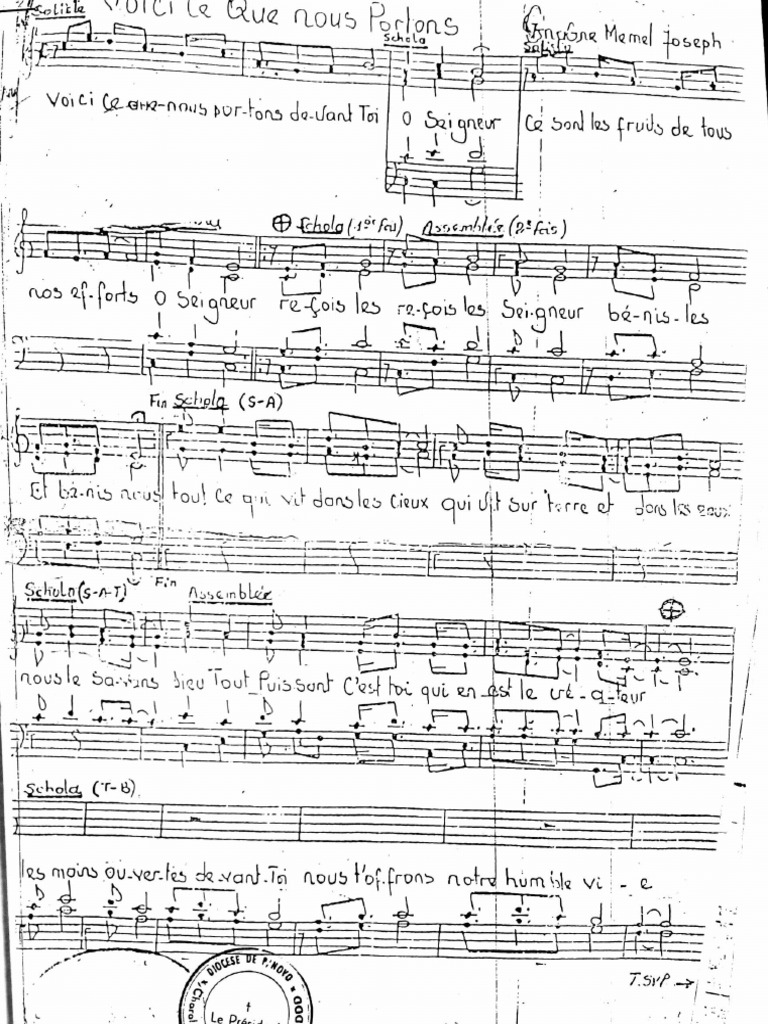 Voici Ce Que nous Portons
Soliste
Schola
Gnagne Memel Joseph
Soliste
Voici ce que nous por-tons de-vant Toi O Seigneur Ce sont les fruits de tous
⊕ Schola (1ère fois) Assemblée (2è fois)
nos ef-forts O Seigneur re-çois les re-çois les Seigneur bé-nis-les
Fin Schola (S-A)
Et bé-nis nous tout ce qui vit dans les cieux qui vit sur terre et dans les eaux
Fin
Schola (S-A-T) Assemblée ⊕
nous le savons Dieu Tout Puissant C'est toi qui en est le cré-a-teur
Schola (T-B)
les mains ou-ver-tes de-vant-Toi nous t'of-frons notre humble vi-e
T.SVP →
DIOCESE DE P/NOVO
Le Présid